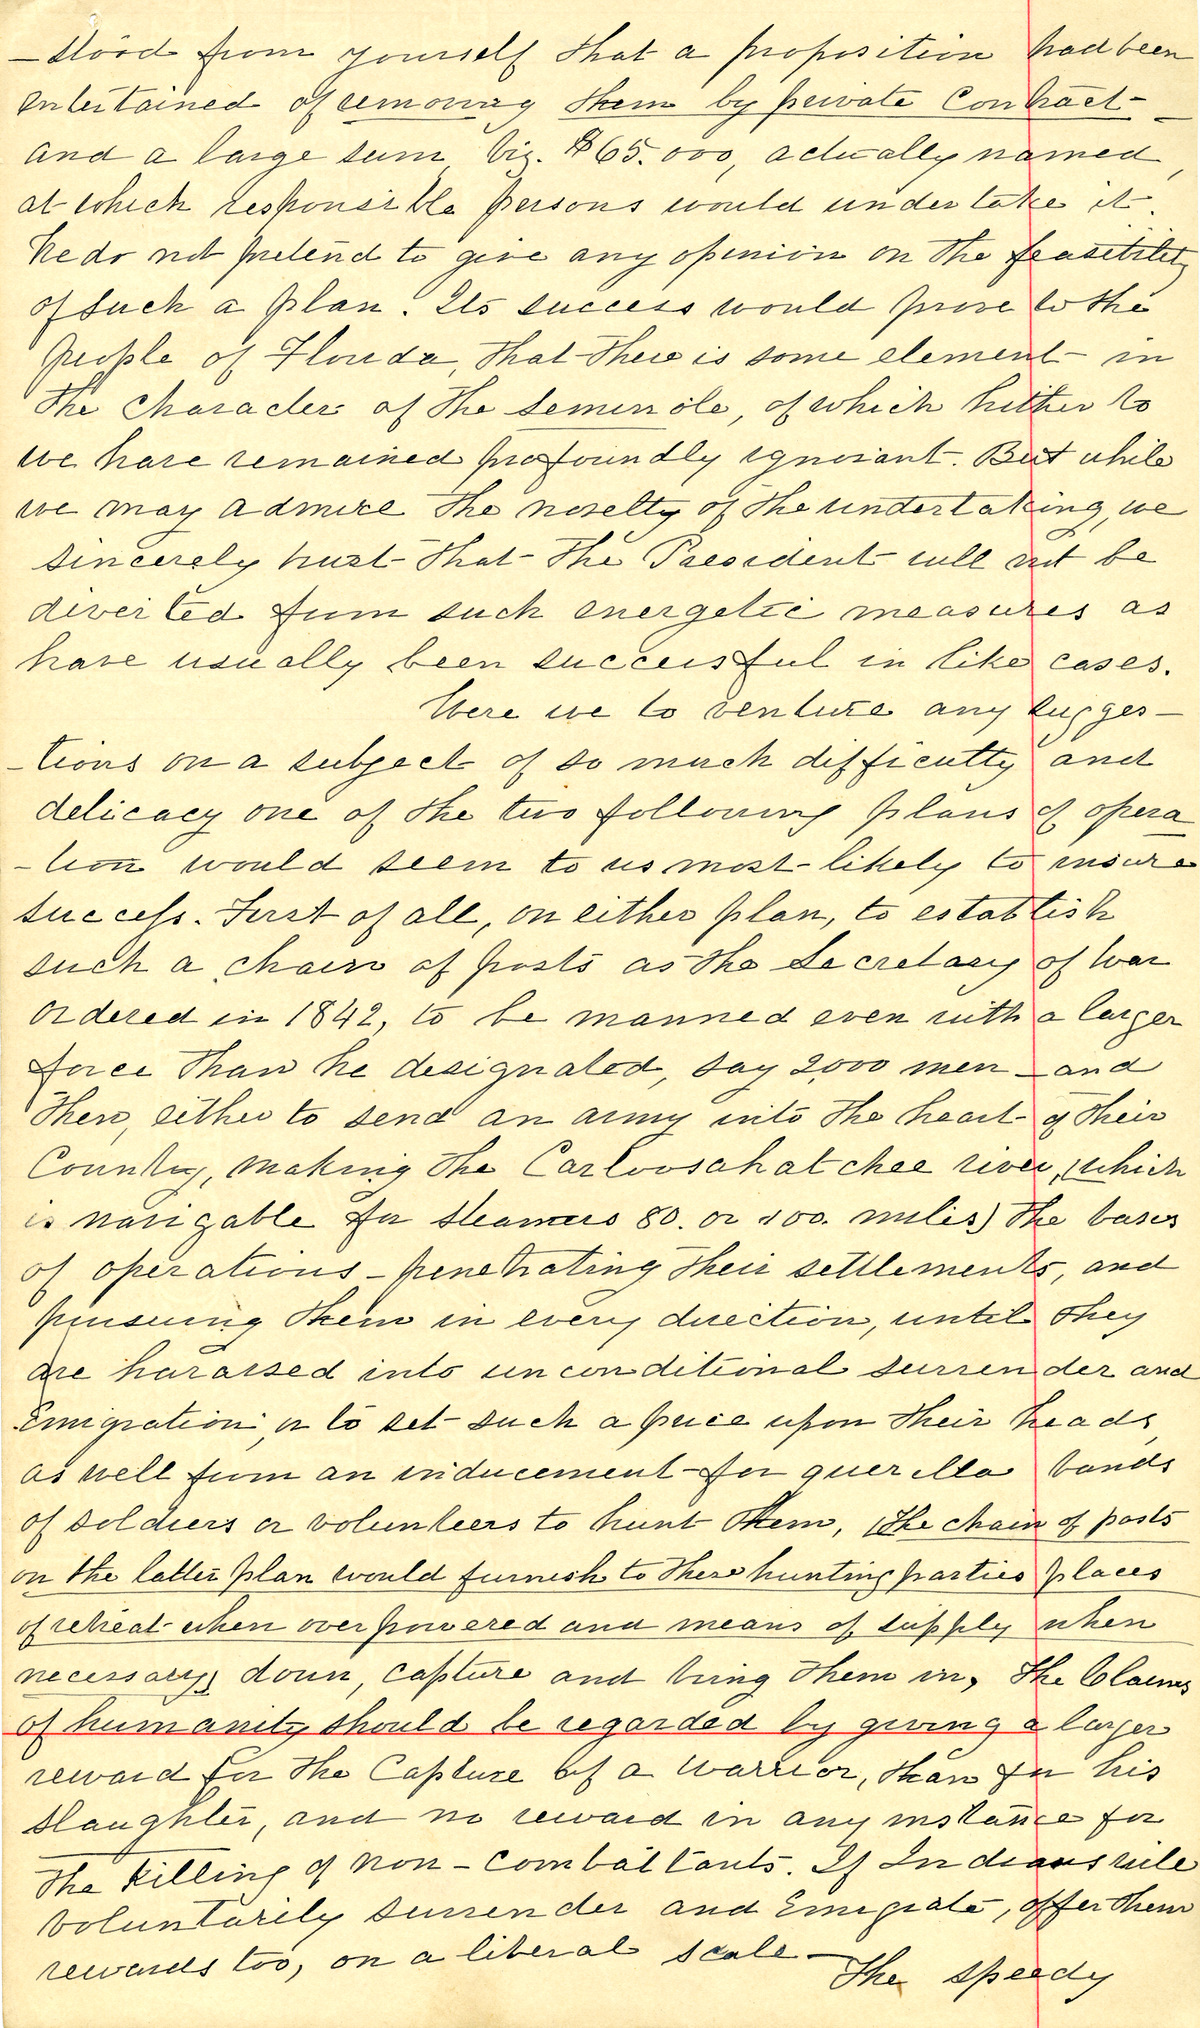 - stood from yourself that a proposition had been
entertained of removing them by private Contract -
and a large sum, Viz. $65.000, actually named,
at which responsible persons would undertake it.
We do not pretend to give any opinion on the feasibility
of such a plan. Its success would prove to the
people of Florida, that there is some element in
the character of the Seminole, of which hither to
we have remained profoundly ignorant. But while
we may admire the novelty of the undertaking, we
sincerely trust that the President will not be
diverted from such energetic measures as
have usually been successful in like cases.
Were we to venture any sugges-
-tions on a subject of so much difficulty and
delicacy one of the two following plans of opera
-tion would seem to us most likely to insure
success. First of all, on either plan, to establish
such a chain of posts as the Secretary of War
ordered in 1842, to be manned even with a larger
force than he designated, say 2,000 men - and
then, either to send an army into the heart of their
Country, making the Carloosahatchee river, (which
is navigable for steamers 80. or 100. miles) the basis
of operations - penetrating their settlements, and
pursuing them in every direction, until they
are harassed into unconditional surrender and
Emigration; or to set such a price upon their heads,
as well form an inducement for guerilla bands
of soldiers or volunteers to hunt them, (the chain of posts
on the latter plan would furnish to these hunting parties places
of retreat when overpowered and means of supply when
necessary) down, capture and bring them in, The Claims
of humanity should be regarded by giving a larger
reward for the Capture of a Warrior, than for his
slaughter, and no reward in any instance for
the killing of non-combattants. If Indians will
voluntarily surrender and Emigrate, offer them
rewards too, on a liberal scale -
The speedy